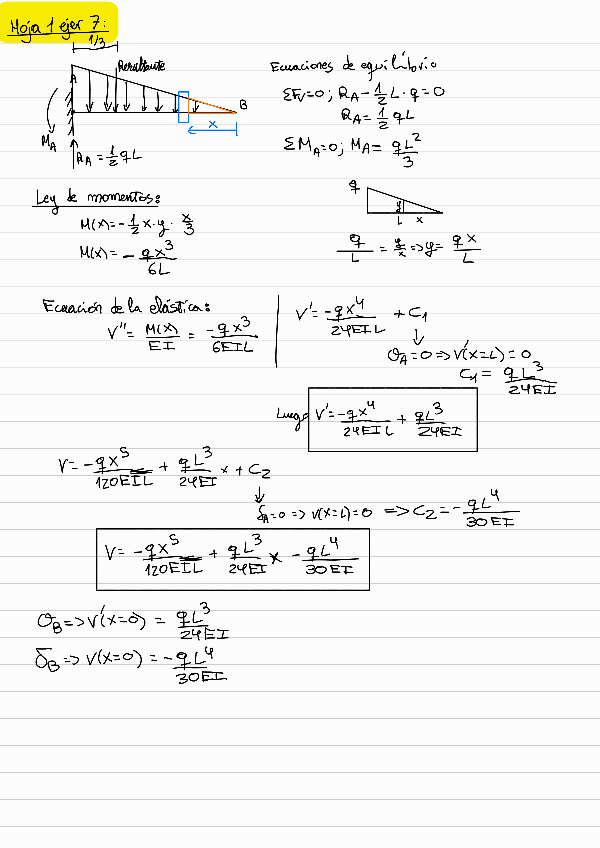 Hoja 1 ejer 7:
1/3
Resultante
A
B
x
M_A
R_A = 1/2 qL
Ecuaciones de equilibrio
ΣFv=0; R_A - 1/2 L · q = 0
R_A = 1/2 qL
ΣM_A=0; M_A = qL²/3
Ley de momentos:
M(x) = -1/2 x·y · x/3
M(x) = - qx³/6L
q
y
L
x
q/L = y/x => y = qx/L
Ecuación de la elástica:
V'' = M(x)/EI = -qx³/6EIL
V' = -qx⁴/24EIL + C₁
θ_A=0 => V'(x=L) = 0
C₁ = qL³/24EI
Luego V' = -qx⁴/24EIL + qL³/24EI
V = -qx⁵/120EIL + qL³/24EI x + C₂
δ_A=0 => V(x=L)=0 => C₂ = -qL⁴/30EI
V = -qx⁵/120EIL + qL³/24EI x - qL⁴/30EI
θ_B => V'(x=0) = qL³/24EI
δ_B => V(x=0) = -qL⁴/30EI